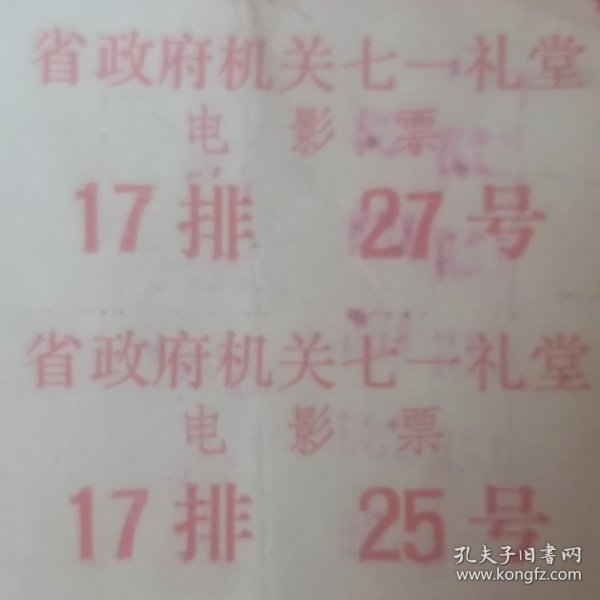 省政府机关七一礼堂
电影票
17排 27号
省政府机关七一礼堂
电影票
17排 25号
孔夫子旧书网
www.kongfz.com